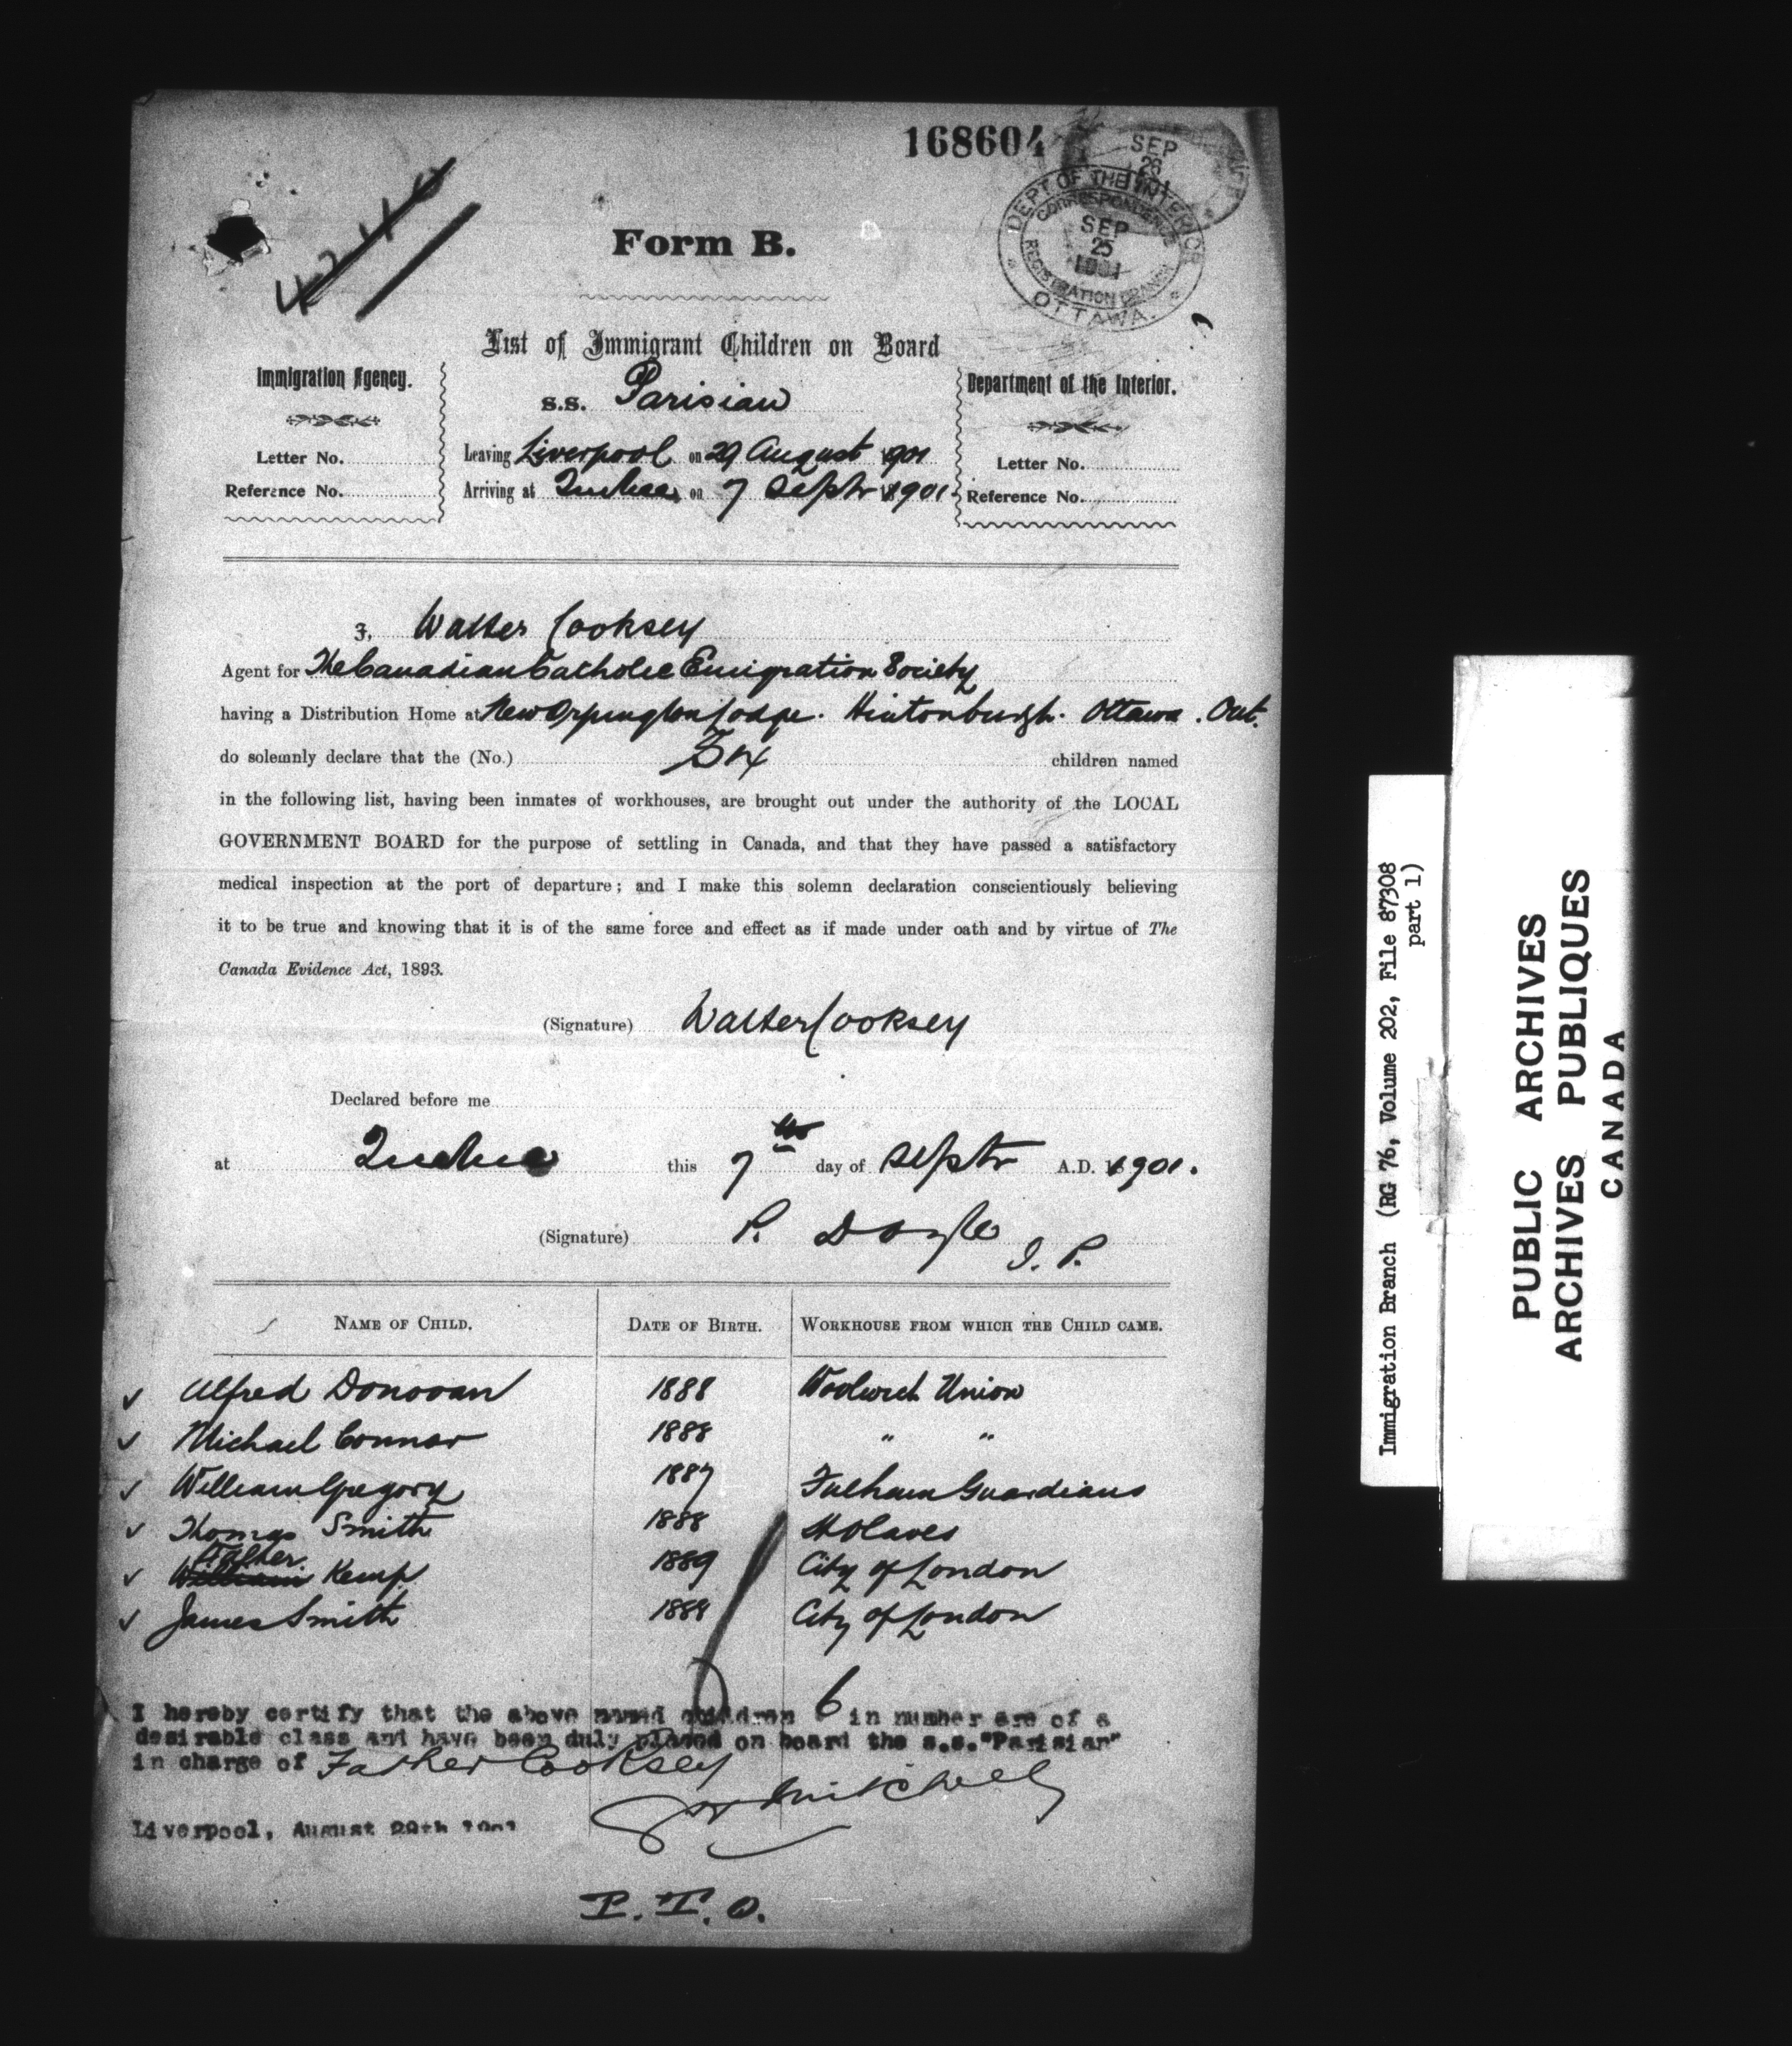 168604
SEP
26
DEPT OF THE INTERIOR
CORRESPONDENCE
SEP
25
1901
REGISTRATION BRANCH
OTTAWA.
Form B.
List of Immigrant Children on Board
Immigration Agency.
s.s. Parisian
Department of the Interior.
Letter No.
Leaving Liverpool on 29 August 1901
Letter No.
Reference No.
Arriving at Quebec on 7 Septr 1901.
Reference No.
I, Walter Cooksey
Agent for The Canadian Catholic Emigration Society
having a Distribution Home at New Orpington Lodge. Hintonburgh. Ottawa. Ont.
do solemnly declare that the (No.) Six children named
in the following list, having been inmates of workhouses, are brought out under the authority of the LOCAL
GOVERNMENT BOARD for the purpose of settling in Canada, and that they have passed a satisfactory
medical inspection at the port of departure; and I make this solemn declaration conscientiously believing
it to be true and knowing that it is of the same force and effect as if made under oath and by virtue of The
Canada Evidence Act, 1893.
(Signature) Walter Cooksey
Declared before me
at Quebec this 7th day of Septr A.D. 1901.
(Signature) P. Doyle J. P.
NAME OF CHILD. DATE OF BIRTH. WORKHOUSE FROM WHICH THE CHILD CAME.
Alfred Donovan 1888 Woolwich Union
Michael Connor 1888 " "
William Gregory 1887 Fulham Guardians
Thomas Smith 1888 St Olaves
William Kemp 1889 City of London
James Smith 1888 City of London
I hereby certify that the above named children 6 in number are of a
desirable class and have been duly placed on board the s.s."Parisian"
in charge of Father Cooksey
Mitchell
Liverpool, August 29th 1901
P.T.O.
Immigration Branch (RG 76, Volume 202, File 87308
part 1)
PUBLIC ARCHIVES
ARCHIVES PUBLIQUES
CANADA